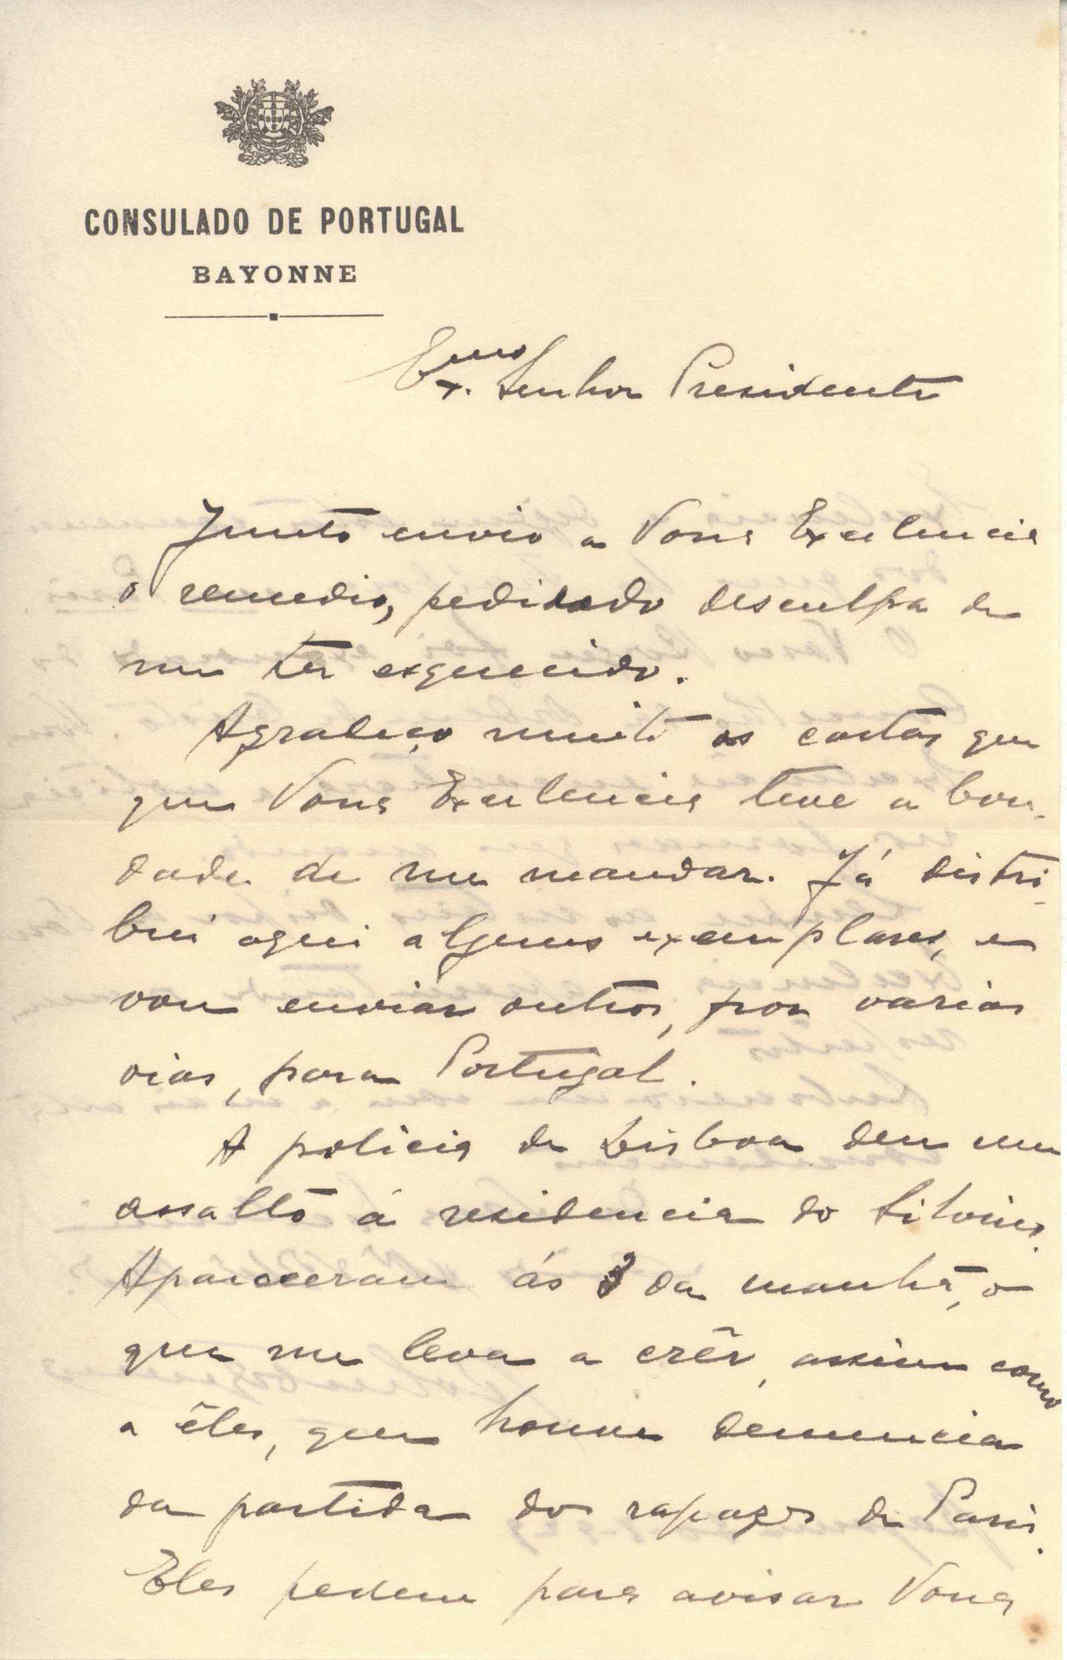 CONSULADO DE PORTUGAL
BAYONNE
Exmo. Senhor Presidente
Junto envio a Vossa Excelencia
o remedio, pedindo desculpa de
me ter esquecido.
Agradeço muito as cartas que
que Vossa Excelencia teve a bon-
dade de me mandar. Já distri-
bui aqui alguns exemplares, e
vou enviar outros, por varias
vias, para Portugal.
A policia de Lisboa deu um
assalto á residencia do Silvino.
Apareceram ás 3 da manhã, o
que me leva a crêr, assim como
a êles, que houve denuncia
da partida dos rapazes de Paris.
Eles pedem para avisar Vossa